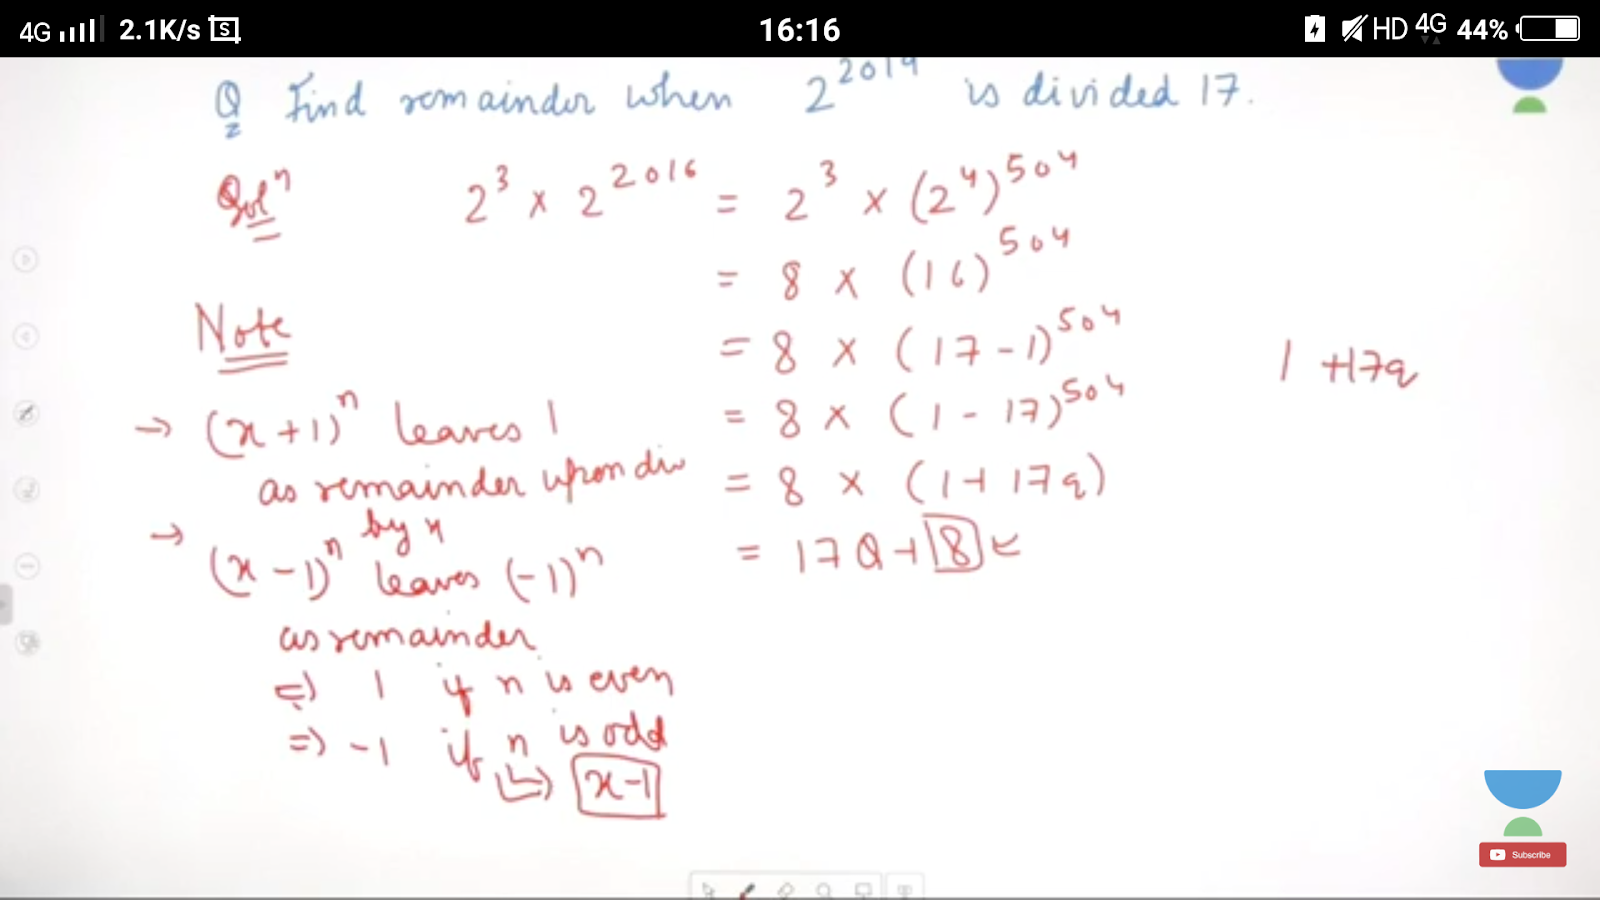 4G 2.1K/s 16:16 HD 4G 44%
Q Find remainder when 2^2019 is divided 17.
Solⁿ 2^3 x 2^2016 = 2^3 x (2^4)^504
= 8 x (16)^504
Note
= 8 x (17-1)^504
1 +17q
→ (x+1)^n leaves 1
= 8 x (1-17)^504
as remainder upon div
= 8 x (1+17q)
by x
→ (x-1)^n leaves (-1)^n
= 17Q+8
as remainder
=> 1 if n is even
=> -1 if n is odd
x-1
Subscribe